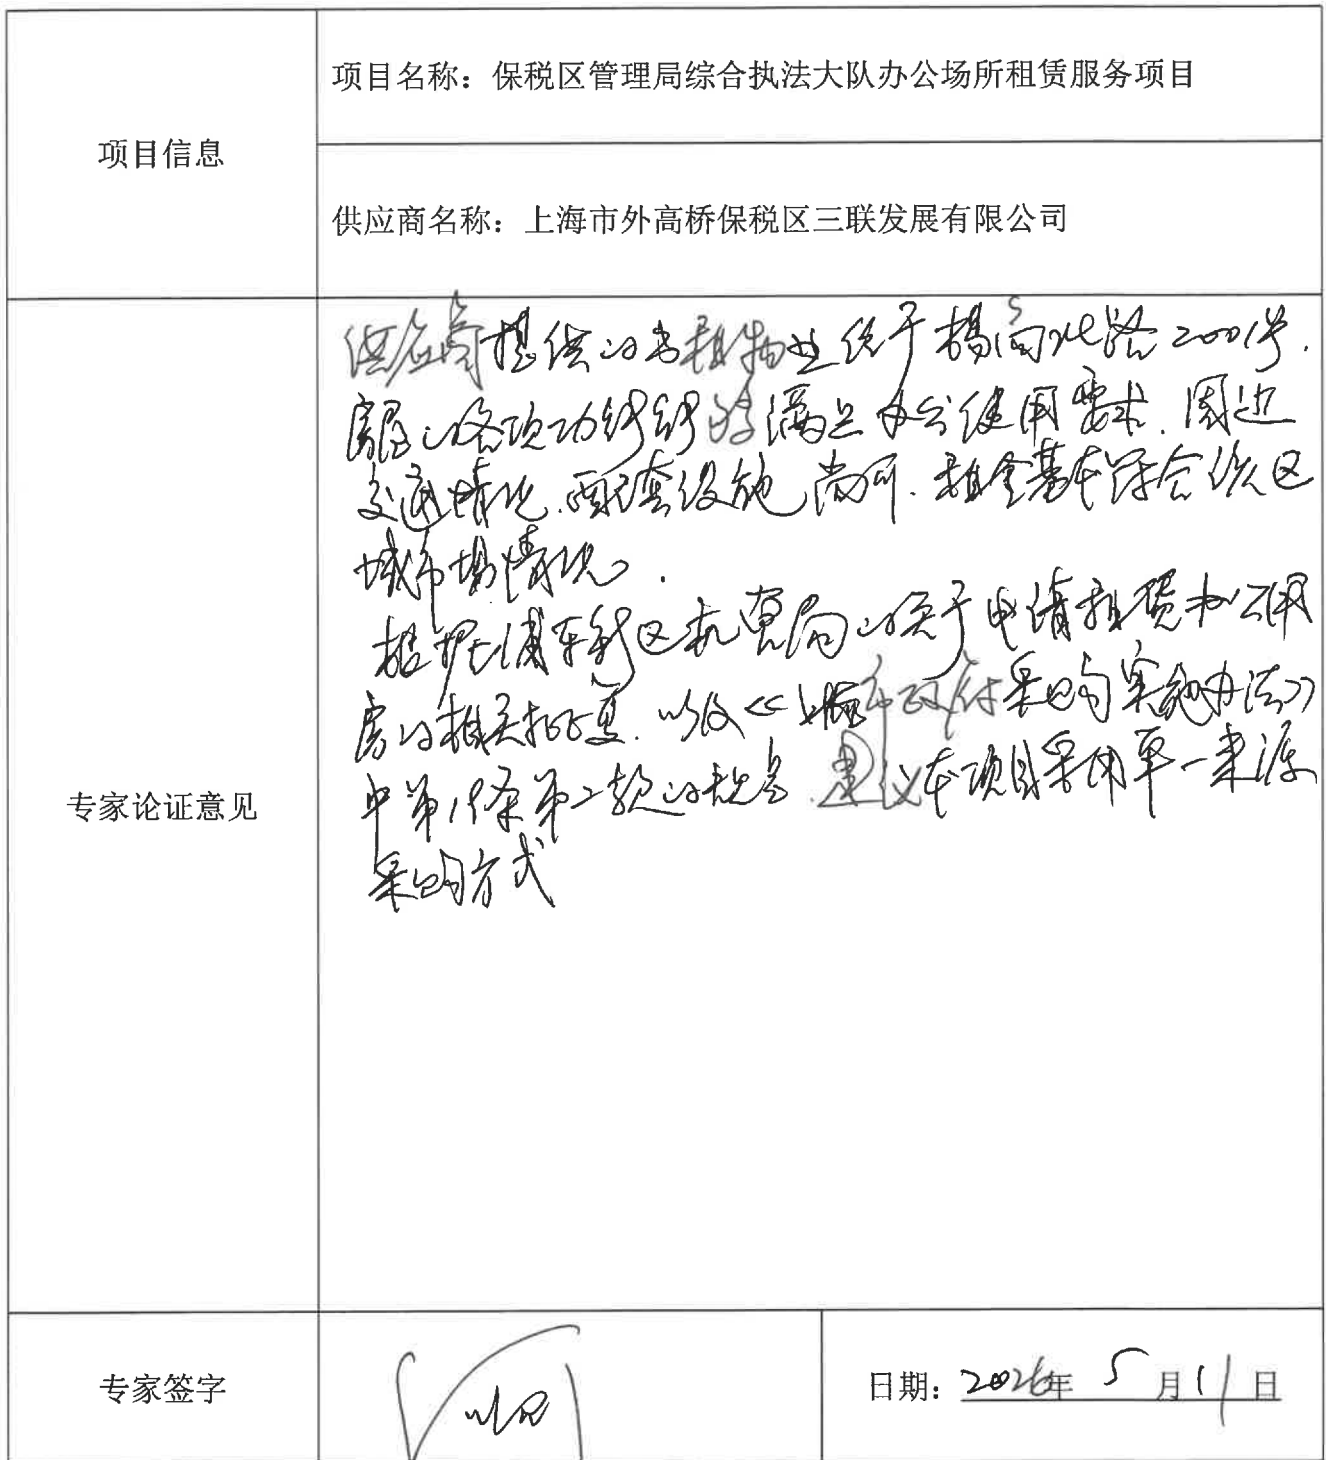 项目信息
项目名称：保税区管理局综合执法大队办公场所租赁服务项目
供应商名称：上海市外高桥保税区三联发展有限公司
专家论证意见
供应商提供的出租物业位于杨高北路2001号.
房屋的各项功能能够满足办公使用要求.周边
交通情况.配套设施尚可.租金基本符合该区
域市场情况.
根据浦东新区机管局的关于申请租赁办公用
房的相关批复.以及《上海市政府采购实施办法》
中第19条第二款的规定.建议本项目采用单一来源
采购方式
专家签字
日期：2026年5月11日